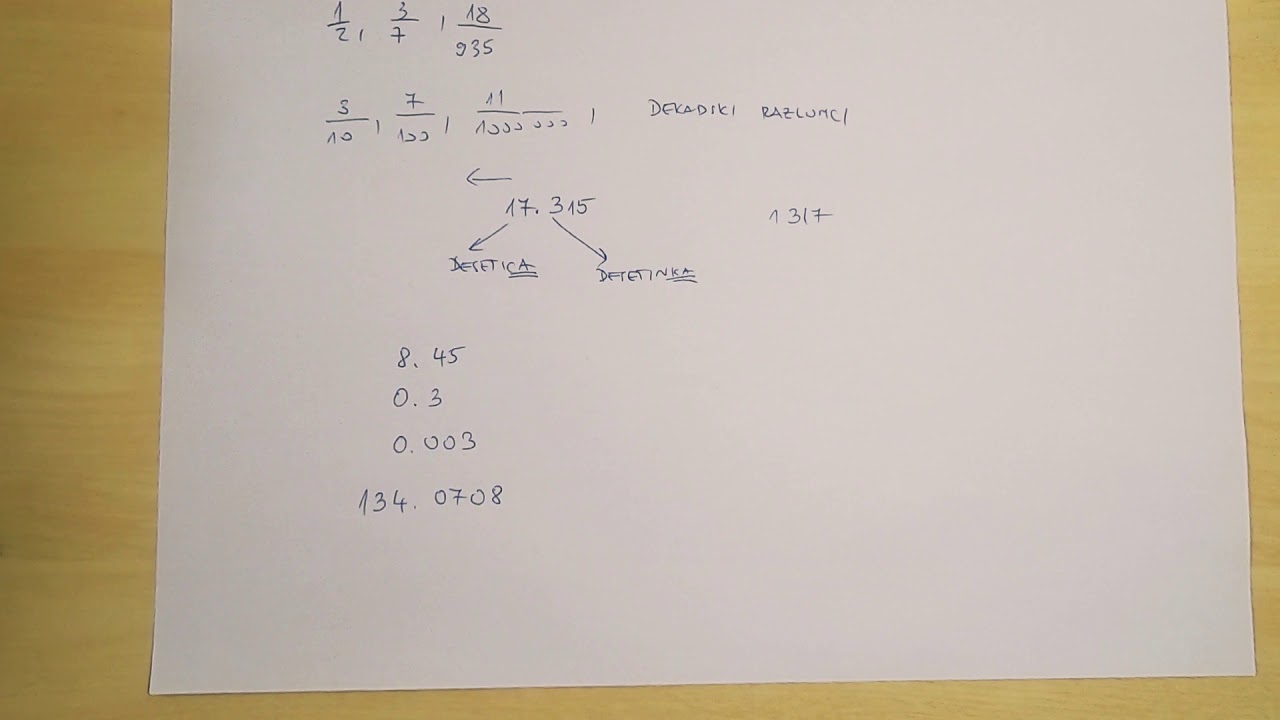 1/2, 3/7, 18/935
3/10, 7/100, 11/1000 000, DEKADSKI RAZLOMCI
←
17.315 1317
DESETICA DESETINKA
8.45
0.3
0.003
134.0708